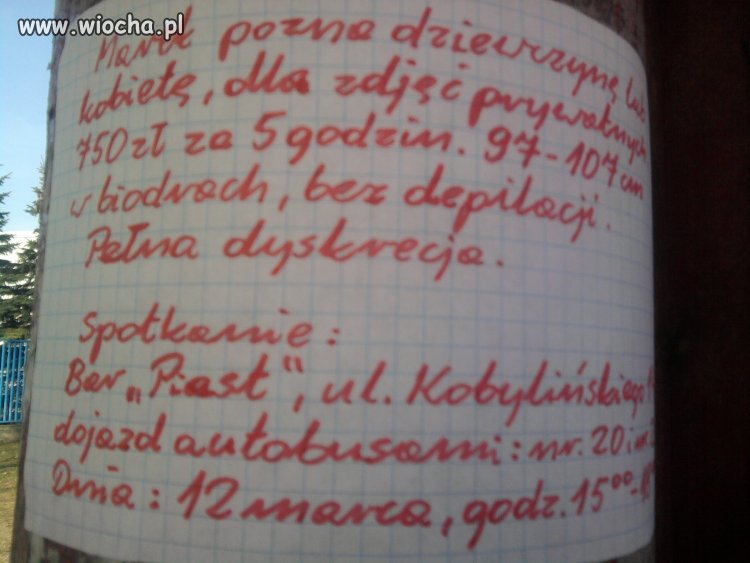 www.wiocha.pl
Marek pozna dziewczynę lub
kobietę, dla zdjęć prywatnych
750zł za 5 godzin. 97-107 cm
w biodrach, bez depilacji.
Pełna dyskrecja.
Spotkanie:
Bar „Piast", ul. Kobylińskiego
dojazd autobusami: nr. 20 i nr.
Dnia: 12 marca, godz. 15⁰⁰-